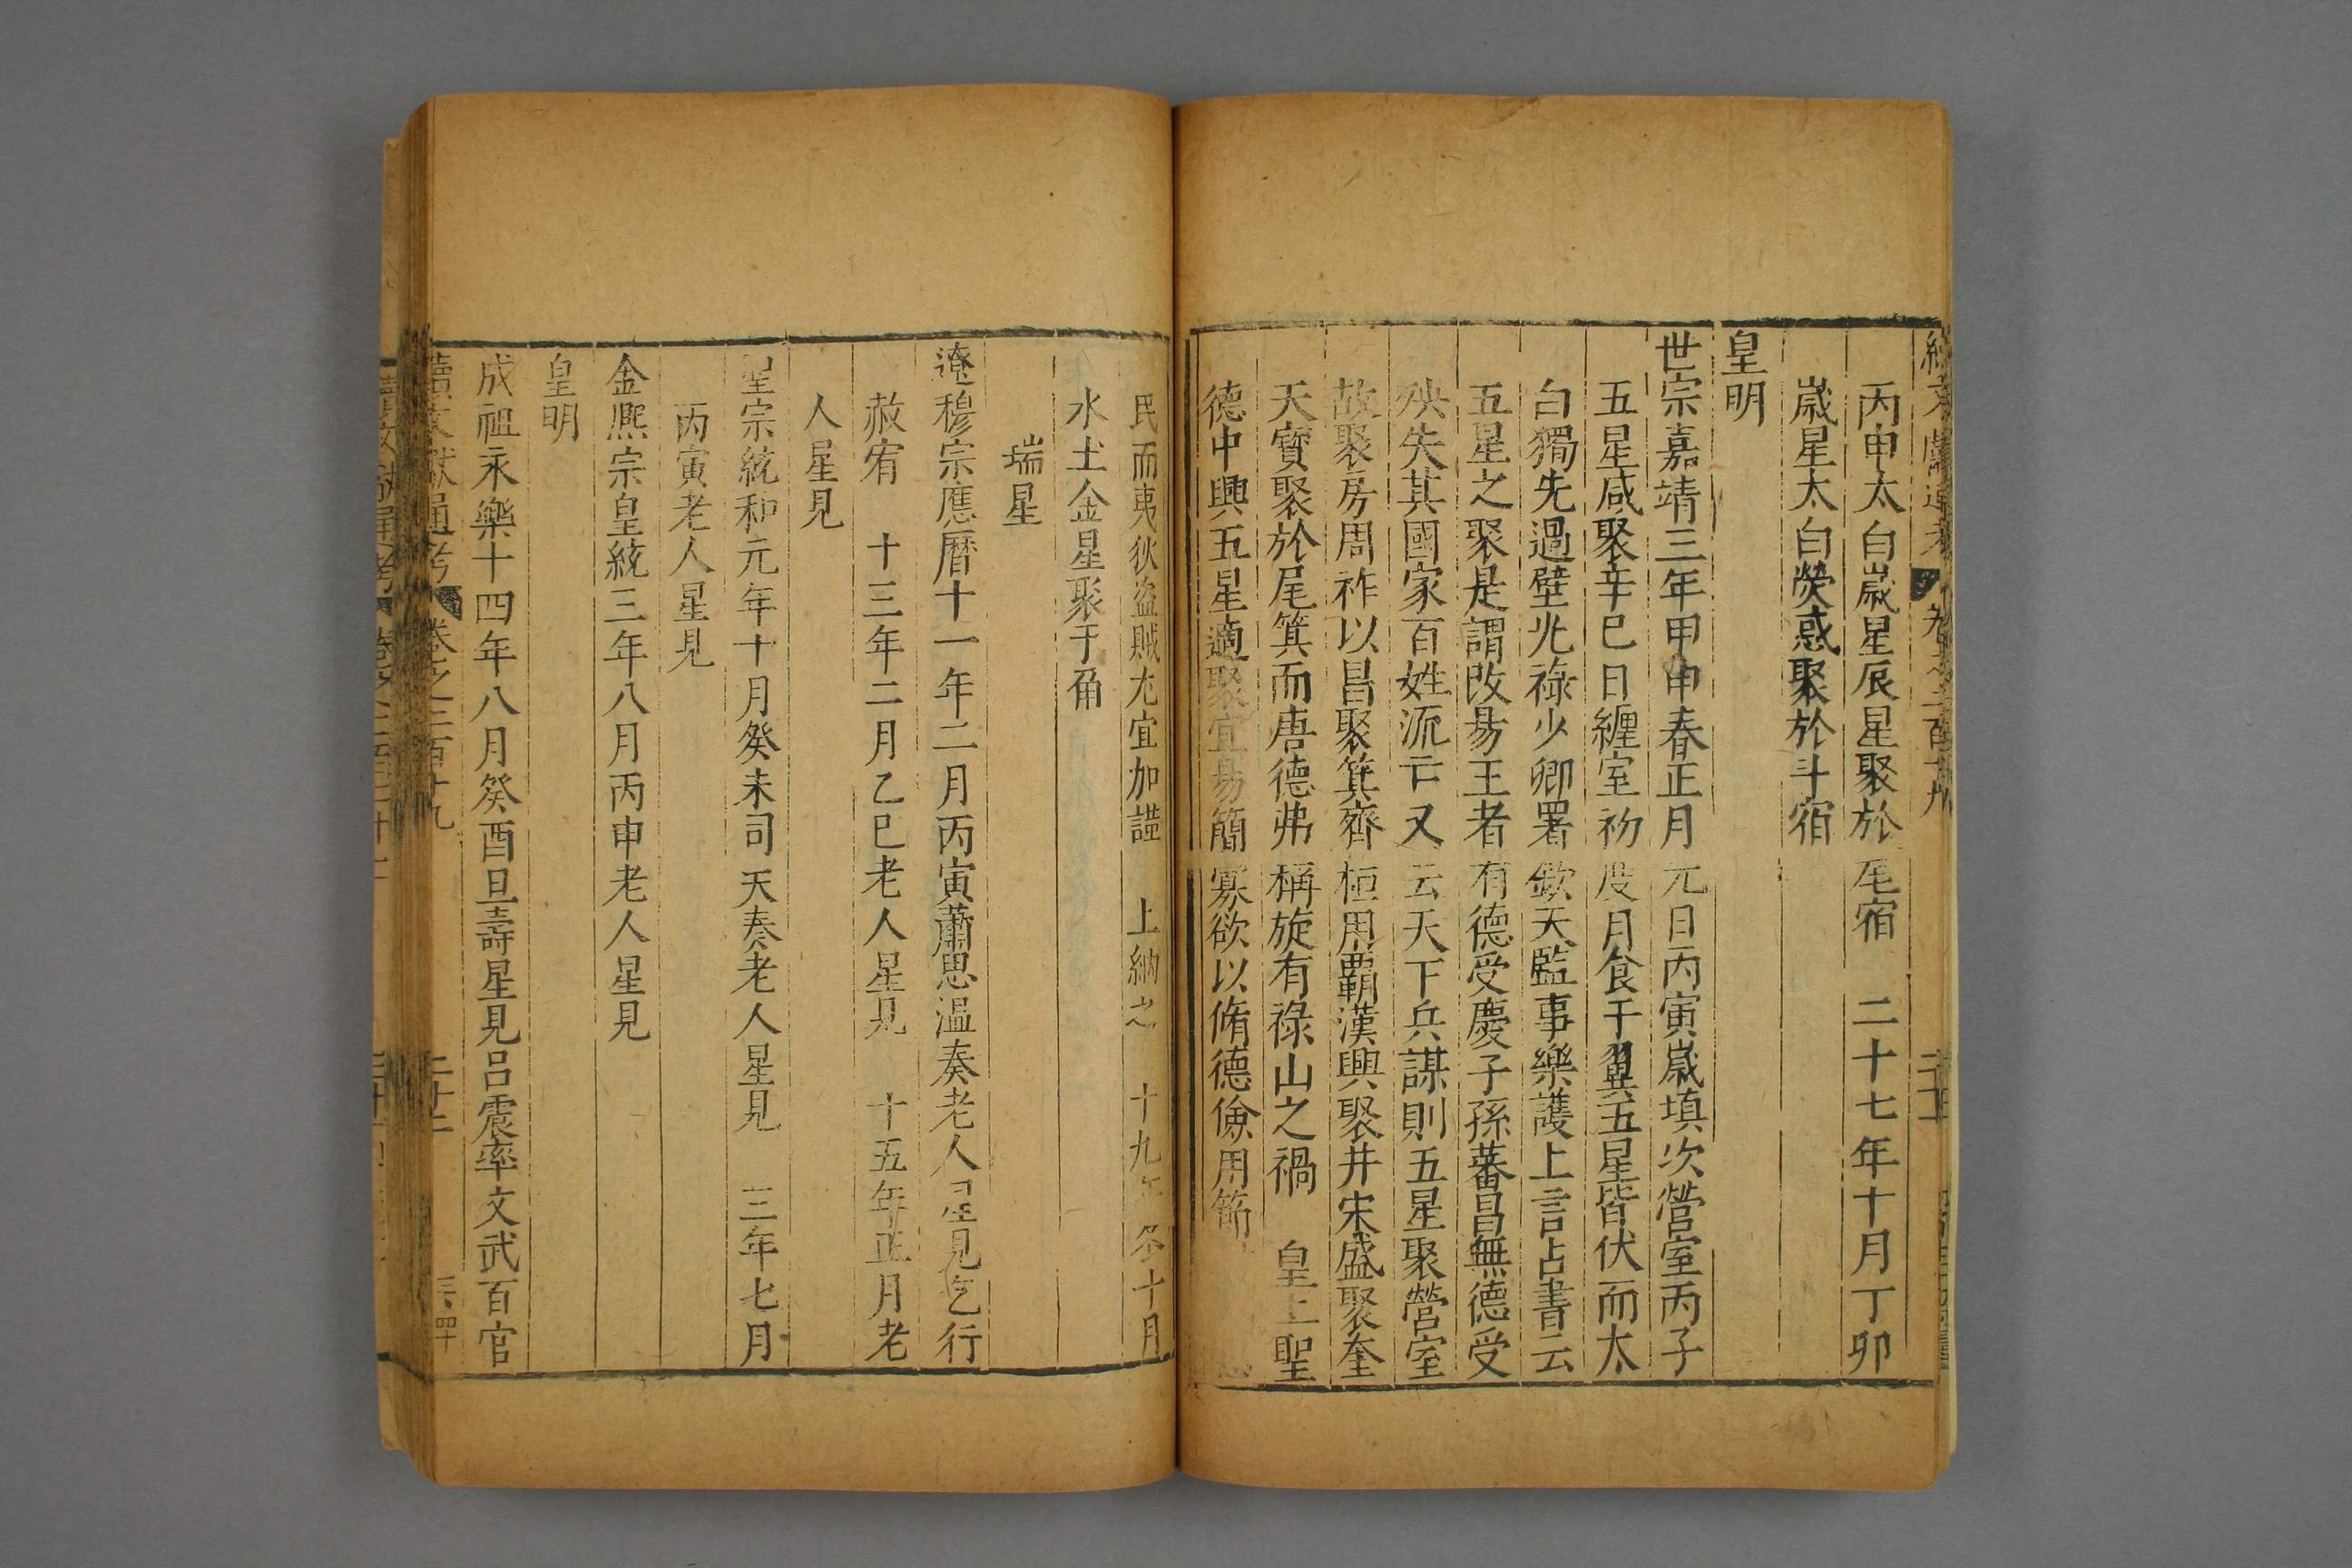 丙申太白歲星辰星聚於尾宿　二十七年十月丁卯
歲星太白熒惑聚於斗宿
皇明
世宗嘉靖三年甲申春正月元日丙寅歲填次營室丙子
五星咸聚辛巳日纏室初度月食于翼五星皆伏而太
白獨先過壁光祿少卿署欽天監事樂頀上言占書云
五星之聚是謂改昜王者有德受慶子孫蕃昌無德受
殃失其國家百姓流亡又云天下兵謀則五星聚營室
故聚房周祚以昌聚箕齊桓用覇漢興聚井宋盛聚奎
天寳聚於尾箕而唐德弗稱旋有祿山之禍　皇上聖
德中興五星適聚宜昜簡寡欲以脩德儉用節
民而夷狄盜賊尤宜加謹　上納之　十九年冬十月
水土金星聚于角
瑞星
遼穆宗應曆十一年二月丙寅蕭思温奏老人星見乞行
赦宥　十三年二月乙巳老人星見　十五年正月老
人星見
聖宗統和元年十月癸未司天奏老人星見　三年七月
丙寅老人星見
金熈宗皇統三年八月丙申老人星見
皇明
成祖永樂十四年八月癸酉旦壽星見吕震率文武百官
續文獻通考　卷之二百十九　二十二